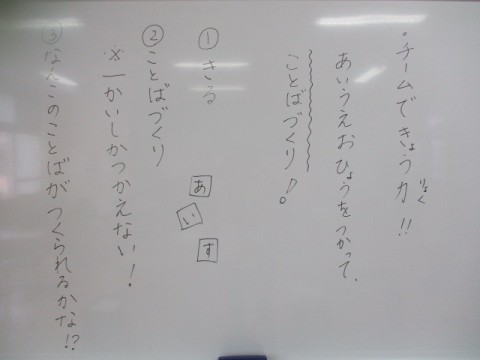 ・チームできょう力!!
りょく
あいうえおひょうをつかって、
ことばづくり!。
①きる
あ
い
す
②ことばづくり
※一かいしかつかえない!
③なんこのことばがつくられるかな!?